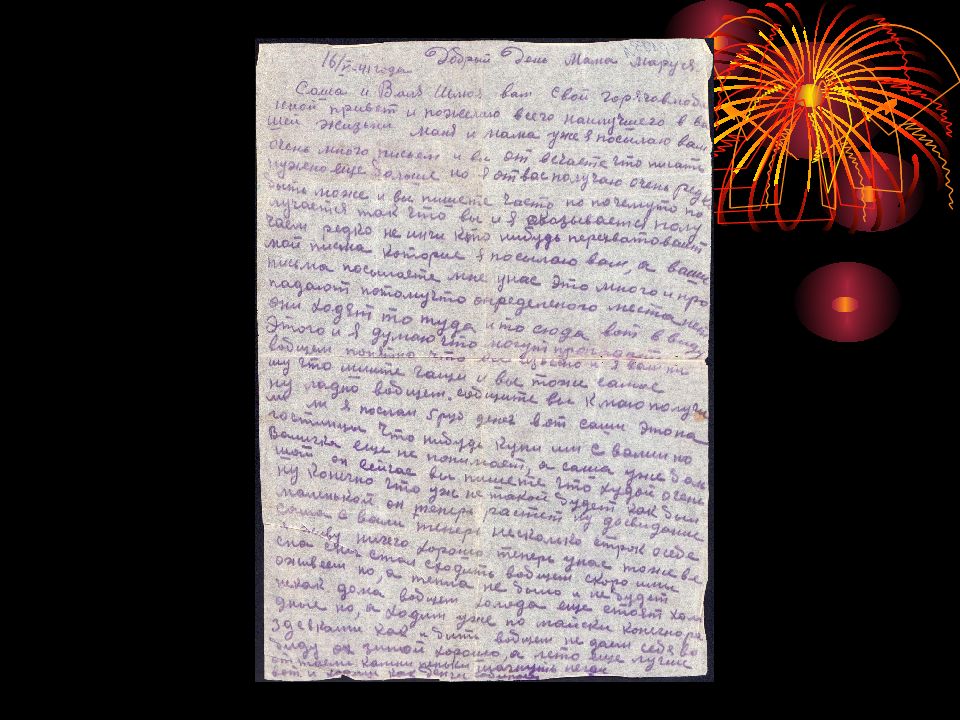 16/V-41 года Добрый День Мама Маруся
Саша и Валя Шлю вам свой горячо любі
 привет и пожелаю всего наилучшего в ва
шей жизьни Маня и мама уже я посылаю вам
очень много писем и вы от вечаете что писать
нужно еще больше но я от вас получаю очень редко
быть може и вы пишете часто но почемуто по
лучается так что вы и я оказывается полу
чаем редко не инчи кто нибудь перехватовает
мои писма которые я посылаю вам, а ваши
письма посылаете мне унас это много и про
падают потомучто определеного места нет
они ходят то туда и то сюда вот в виду
этого и я думаю что могут пропадать
вобщем понятно что и я вам пи
шу что пишите чаще и вы тоже самое
ну ладно вобщем. сообщите вы к маю получи
ли ли я послал 5 руб денег вот саши это на
гостинцы что нибудь купи им с валии но
Валичка еще не понимает, а саша уже боль
шой он сейчас вы пишете что худой очень
ну конечно что уже не такой будет как был
маленькой он теперь растет ну досвидание
саша с вали теперь несколько строк о себе
я живу ничего хорошо теперь унас тоже ве
сна снег стал сходить вобщем скоро
оживеем но, а тепла не было и не будет
некак дома вобщем холода еще стоят холо
дные но, а ходим уже по майски конечно ра
 как и быть вобщем не даем себя во
биду ох зимой хорошо, а лето еще лучше
оттаели камни
вот и ходим как